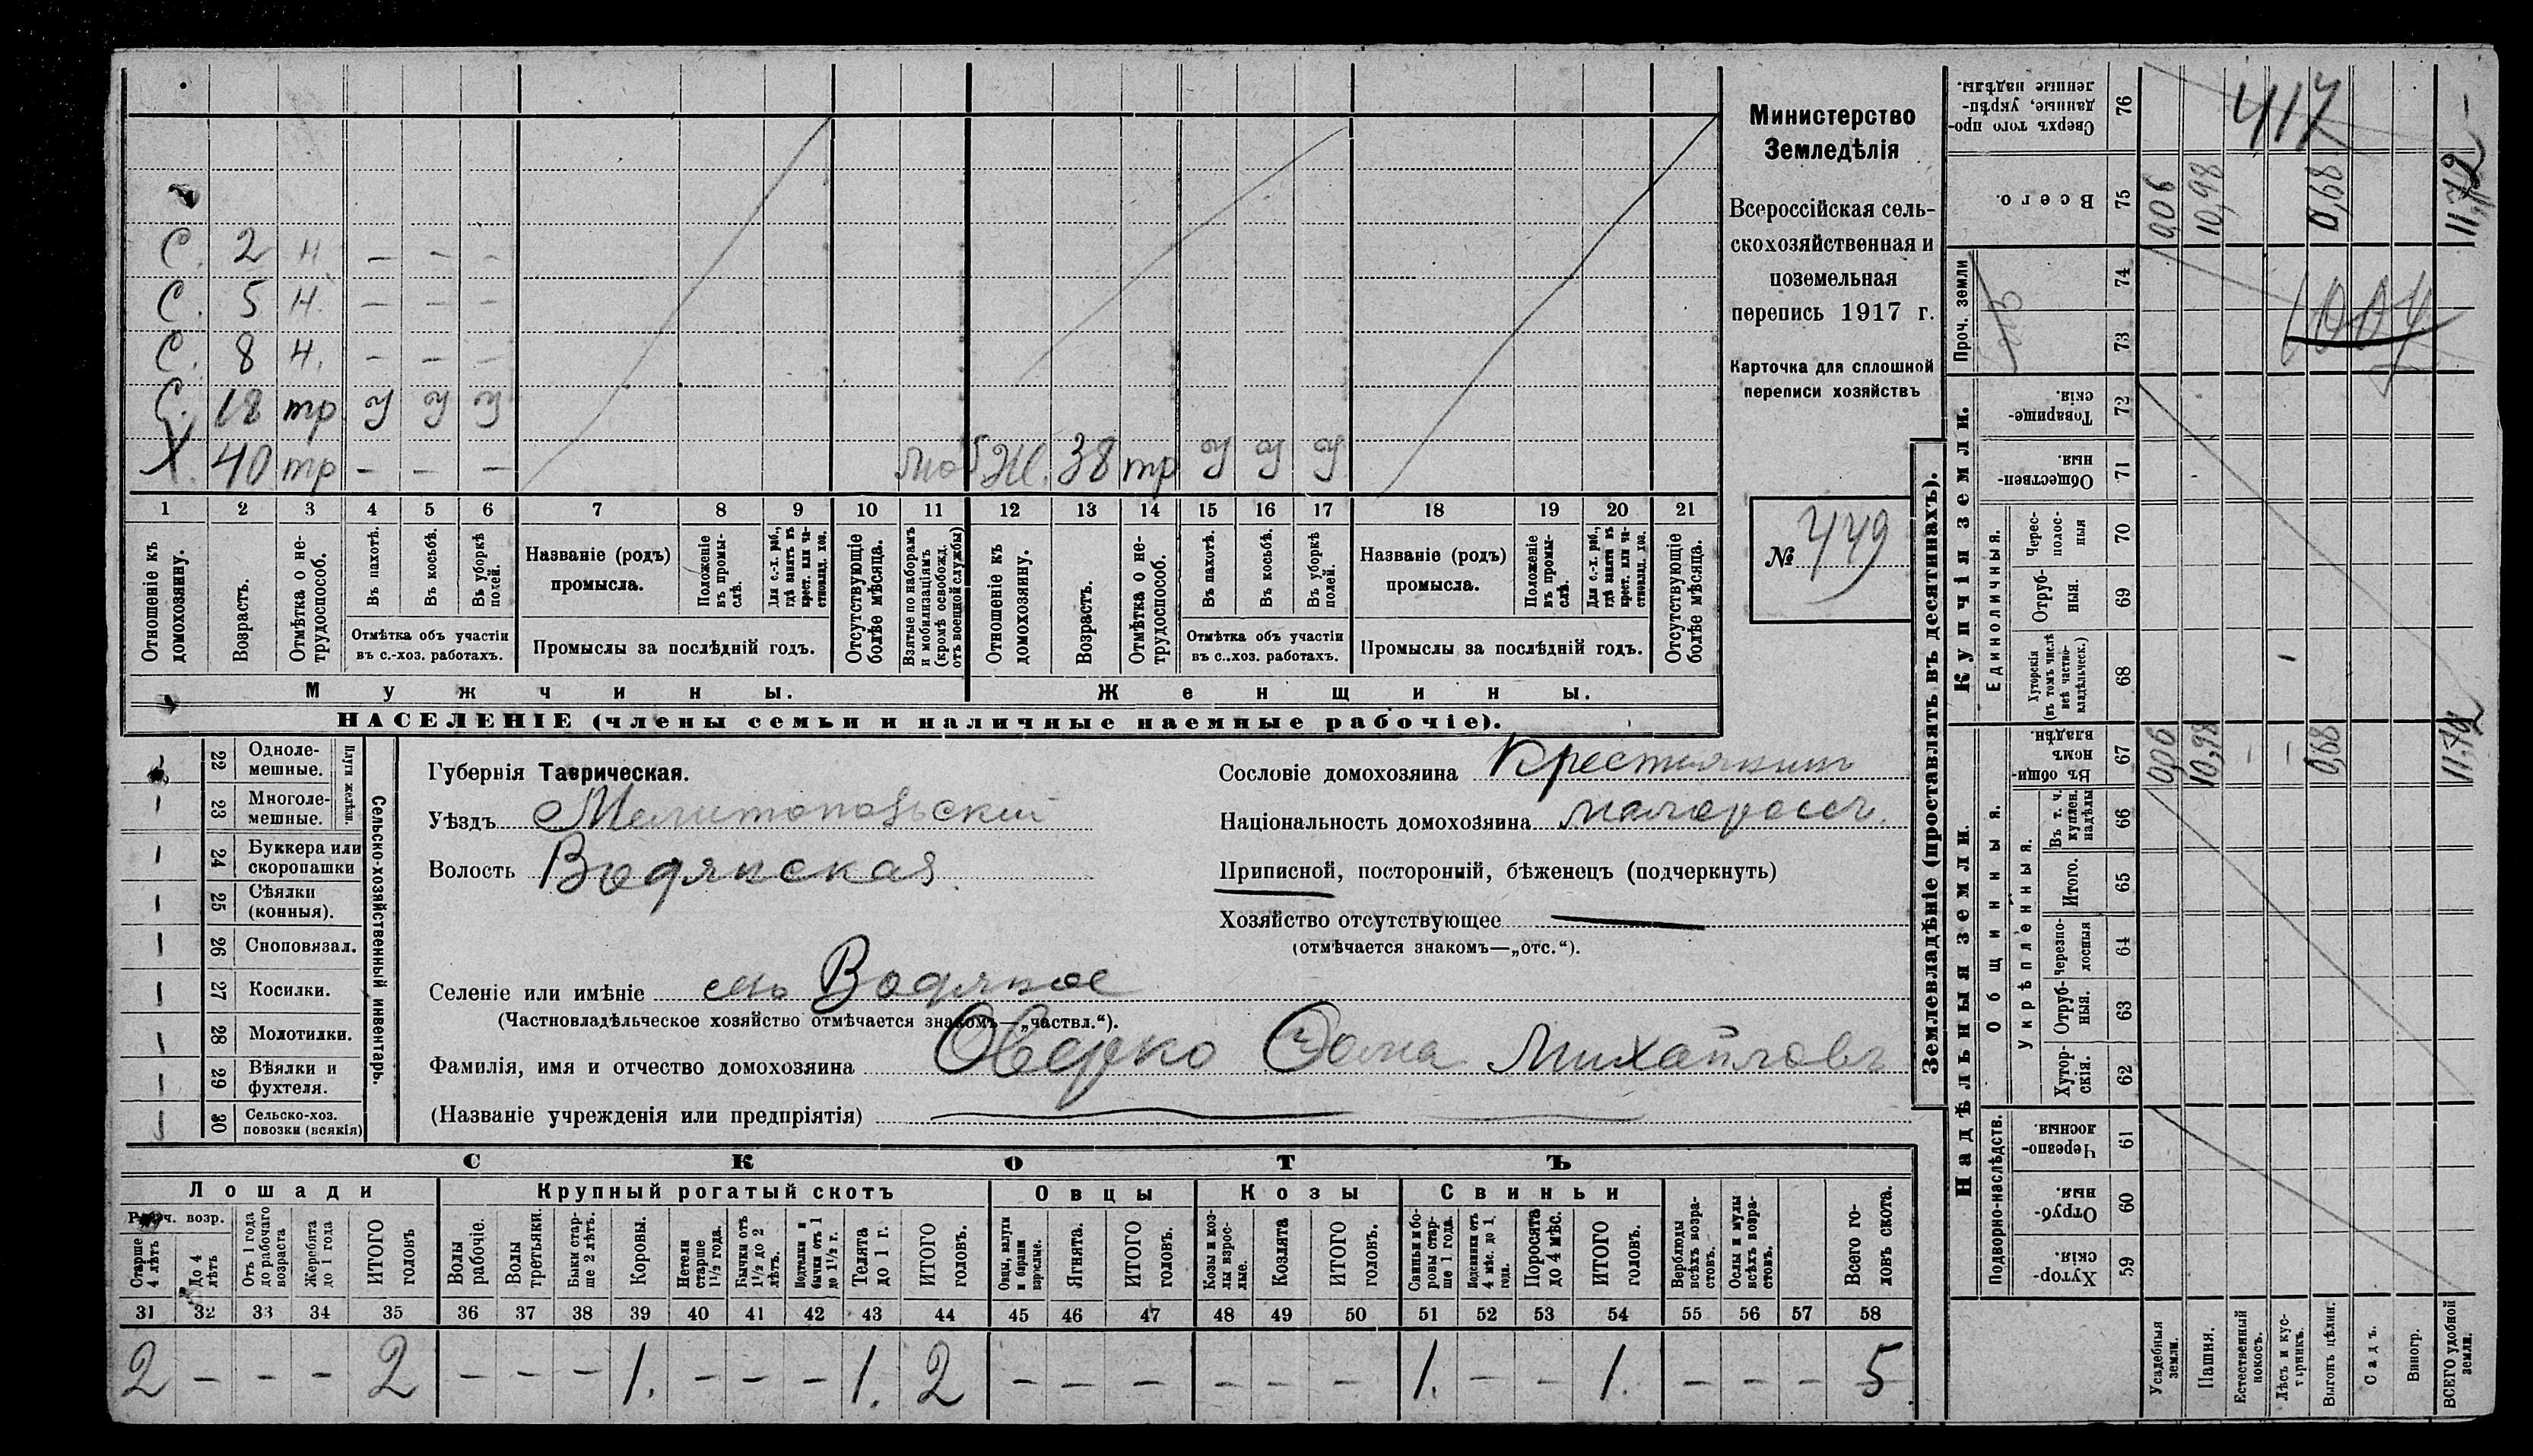 Министерство
Земледѣлія
Всероссійская сель-
скохозяйственная и
поземельная
перепись 1917 г.
Карточка для сплошной
переписи хозяйствъ
№ 449
С. 2 н. – – –
С. 5 н. – – –
С. 8 н. – – –
С. 18 тр у у у
Х. 40 тр – – – моб Ж. 38 тр у у у
1 2 3 4 5 6 7 8 9 10 11 12 13 14 15 16 17 18 19 20 21
Отношеніе къ домохозяину.
Возрастъ.
Отмѣтка о не-трудоспособ.
Въ пахотѣ.
Въ косьбѣ.
Въ уборкѣ полей.
Отмѣтка объ участіи
въ с.-хоз. работахъ.
Названіе (родъ)
промысла.
Положеніе въ промы-слѣ.
Для с.-х. раб., гдѣ занятъ въ крест. или ча-стновлад. хоз.
Промыслы за послѣдній годъ.
Отсутствующіе болѣе мѣсяца.
Взятые по наборамъ и мобилизаціямъ (кромѣ освобожд. отъ военной службы)
Отношеніе къ домохозяину.
Возрастъ.
Отмѣтка о не-трудоспособ.
Въ пахотѣ.
Въ косьбѣ.
Въ уборкѣ полей.
Отмѣтка объ участіи
въ с.-хоз. работахъ.
Названіе (родъ)
промысла.
Положеніе въ промы-слѣ.
Для с.-х. раб., гдѣ занятъ въ крест. или ча-стновлад. хоз.
Промыслы за послѣдній годъ.
Отсутствующіе болѣе мѣсяца.
Мужчины. Женщины.
НАСЕЛЕНІЕ (члены семьи и наличные наемные рабочіе).
Сельско-хозяйственный инвентарь.
Плуги желѣзн.
22 Одноле-мешные.
23 Многоле-мешные.
24 Буккера или скоропашки
25 Сѣялки (конныя).
26 Сноповязал.
27 Косилки.
28 Молотилки.
29 Вѣялки и фухтеля.
30 Сельско-хоз. повозки (всякія)
Губернія Таврическая.
Уѣздъ Мелитопольскій
Волость Водянская
Селеніе или имѣніе сло Водяное
(Частновладѣльческое хозяйство отмѣчается знакомъ—„частвл.“).
Фамилія, имя и отчество домохозяина Оверко Фома Михайловъ
(Названіе учрежденія или предпріятія)
Сословіе домохозяина Крестьянинъ
Національность домохозяина малоросс.
Приписной, посторонній, бѣженецъ (подчеркнуть)
Хозяйство отсутствующее
(отмѣчается знакомъ—„отс.“).
СКОТЪ
Лошади Крупный рогатый скотъ Овцы Козы Свиньи
Рабоч. возр.
Старше 4 лѣтъ
До 4 лѣтъ
Отъ 1 года до рабочаго возраста
Жеребята до 1 года
ИТОГО головъ
Волы рабочіе.
Волы третьяки.
Быки стар-ше 2 лѣтъ.
Коровы.
Нетели старше 1½ года.
Бычки отъ 1½ до 2 лѣтъ.
Подтелки и бычки отъ 1 до 1½ г.
Телята до 1 г.
ИТОГО головъ.
Овцы, валухи и бараны взрослые.
Ягнята.
ИТОГО головъ.
Козы и коз-лы взрос-лые.
Козлята
ИТОГО головъ.
Свиньи и бо-ровы стар-ше 1 года.
Подсвинки отъ 4 мѣс. до 1 года.
Поросята до 4 мѣс.
ИТОГО головъ.
Верблюды всѣхъ возра-стовъ.
Ослы и мулы всѣхъ возра-стовъ.
Всего го-ловъ скота.
31 32 33 34 35 36 37 38 39 40 41 42 43 44 45 46 47 48 49 50 51 52 53 54 55 56 57 58
2 – – – 2 – – – 1. – – – 1. 2 – – – – – – 1. – – 1. – – – 5
Землевладѣніе (проставлять въ десятинахъ).
Надѣльныя земли. Купчія земли. Проч. земли
Подворно-наслѣдств.
Общинныя.
Укрѣпленныя.
Единоличныя.
59 Хутор-скія.
60 Отруб-ныя.
61 Черезпо-лосныя.
62 Хутор-скія.
63 Отруб-ныя.
64 Черезпо-лосныя
65 Итого.
66 Въ т. ч. куплен. надѣлы
67 Въ общи-номъ владѣн.
68 Хуторскія (въ томъ числѣ всѣ частно-владѣльческ.)
69 Отруб-ныя.
70 Черес-полос-ныя
71 Обществен-ныя.
72 Товарище-скія.
73
74
75 Всего.
76 Сверхъ того про-данные, укрѣп-ленные надѣлы.
Усадебныя земли. 0,06 0,06
Пашня. 10,98 10,98
Естественный покосъ. –
Лѣсъ и кус-тарникъ. –
Выгонъ цѣлин. 0,68 0,68
Садъ.
Виногр.
ВСЕГО удобной земли. 11,72 11,72 –
417